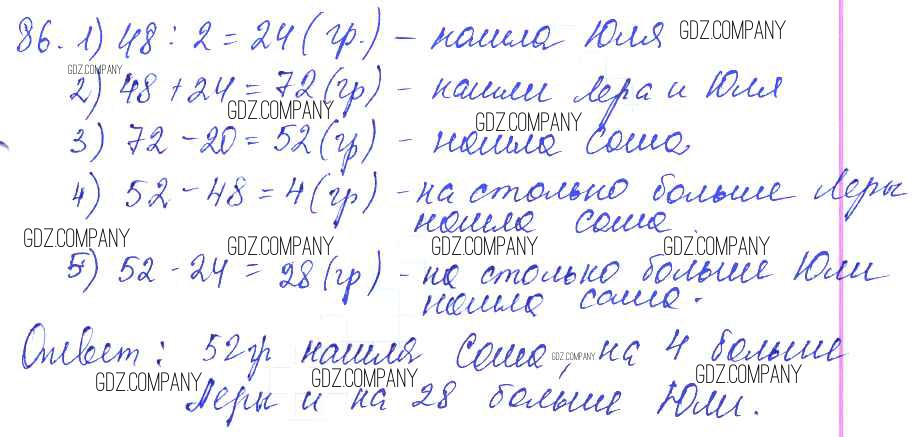 86. 1) 48 : 2 = 24 (гр.) – нашла Юля GDZ.COMPANY
GDZ.COMPANY
2) 48 + 24 = 72 (гр) – нашли Лера и Юля
GDZ.COMPANY GDZ.COMPANY
3) 72 – 20 = 52 (гр) – нашла Саша
4) 52 – 48 = 4 (гр) – на столько больше Леры
нашла Саша
GDZ.COMPANY GDZ.COMPANY GDZ.COMPANY GDZ.COMPANY
5) 52 – 24 = 28 (гр) – на столько больше Юли
нашла Саша.
Ответ: 52 гр нашла Саша, GDZ.COMPANY на 4 больше
GDZ.COMPANY GDZ.COMPANY GDZ.COMPANY
Леры и на 28 больше Юли.